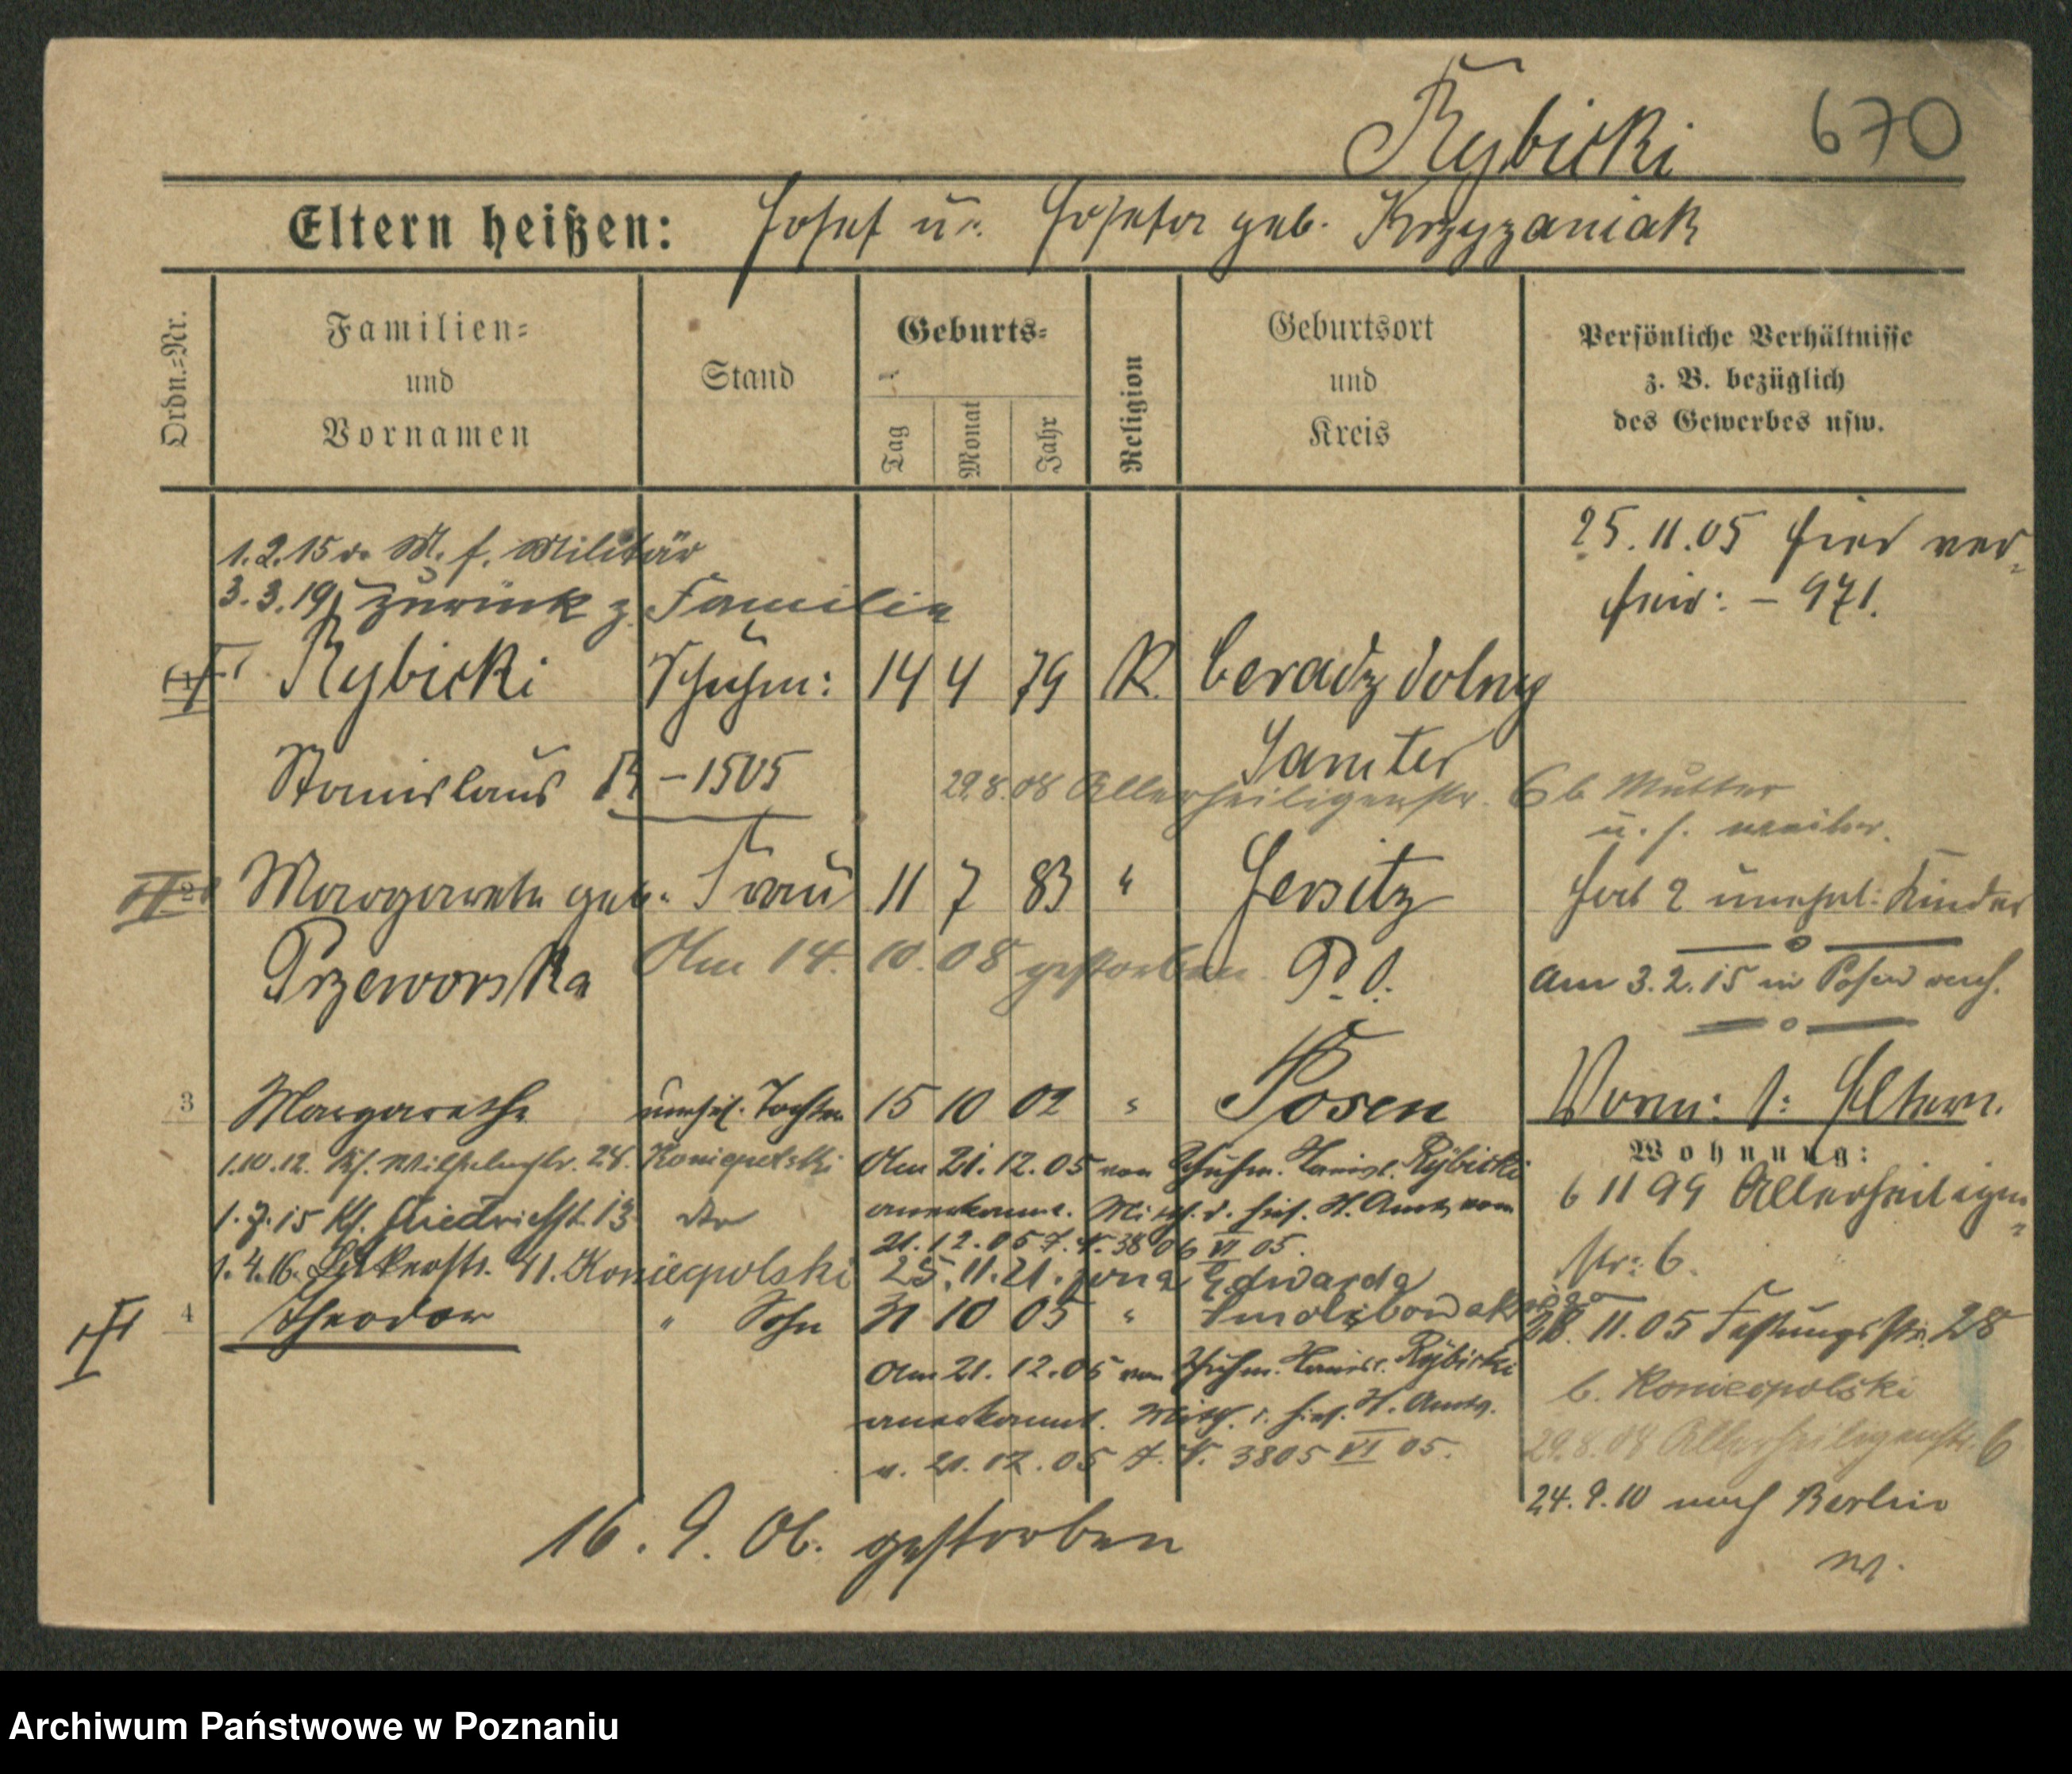 Rybicki 670
Eltern heißen: Josef u. Josefa geb. Krzyzaniak
Ordn.=Nr.
Familien=
und
Vornamen
Stand
Geburts=
Tag
Monat
Jahr
Religion
Geburtsort
und
Kreis
Persönliche Verhältnisse
z. B. bezüglich
des Gewerbes usw.
25.11.05 hier ver-
heir: - 971.
1.2.15 z. Militär
3.3.19 zurück z. Familie
Rybicki Schuhm: 14 4 79 R. Ceradz dolny
Samter
Stanislaus - 1505
29.8.08 Allerheiligenstr. 6 b. Mutter
u. s. weiter.
Margarete geb. Frau 11 7 83 " Jersitz
P. O.
hat 2 unehel: Kinder
Przeworska
Am 14. 10. 08 gestorben
Am 3.2.15 in Posen verh.
3 Margarethe unehel. Tochter 15 10 02 " Posen
Vorm: s: Eltern.
Wohnung:
1.10.12. Kl. Wilhelmstr. 28. Koniecpolski
Am 21. 12. 05 von Schuhm. Stanisl. Rybicki
anerkannt. Mitth. d. hies. St. Amts vom
21.12.05 J. N. 3806 VI 05.
6 11 99 Allerheiligen-
str: 6.
1.7.15 Kl. 13 dto
1.4.16. 41. Koniecpolski
25.11.21. Edwarda
4 Theodor " Sohn 31 10 05 "
28. 11. 05 Festungsstr. 28
b. Koniecpolski
Am 21. 12. 05 von Schuhm. Stanisl. Rybicki
anerkannt. Mitth. d. hies. St. Amts.
v. 21. 12. 05 J. N. 3805 VI 05.
29.8.08 Allerheiligenstr. 6
24.9.10 nach Berlin
16. 9. 06. gestorben
Archiwum Państwowe w Poznaniu